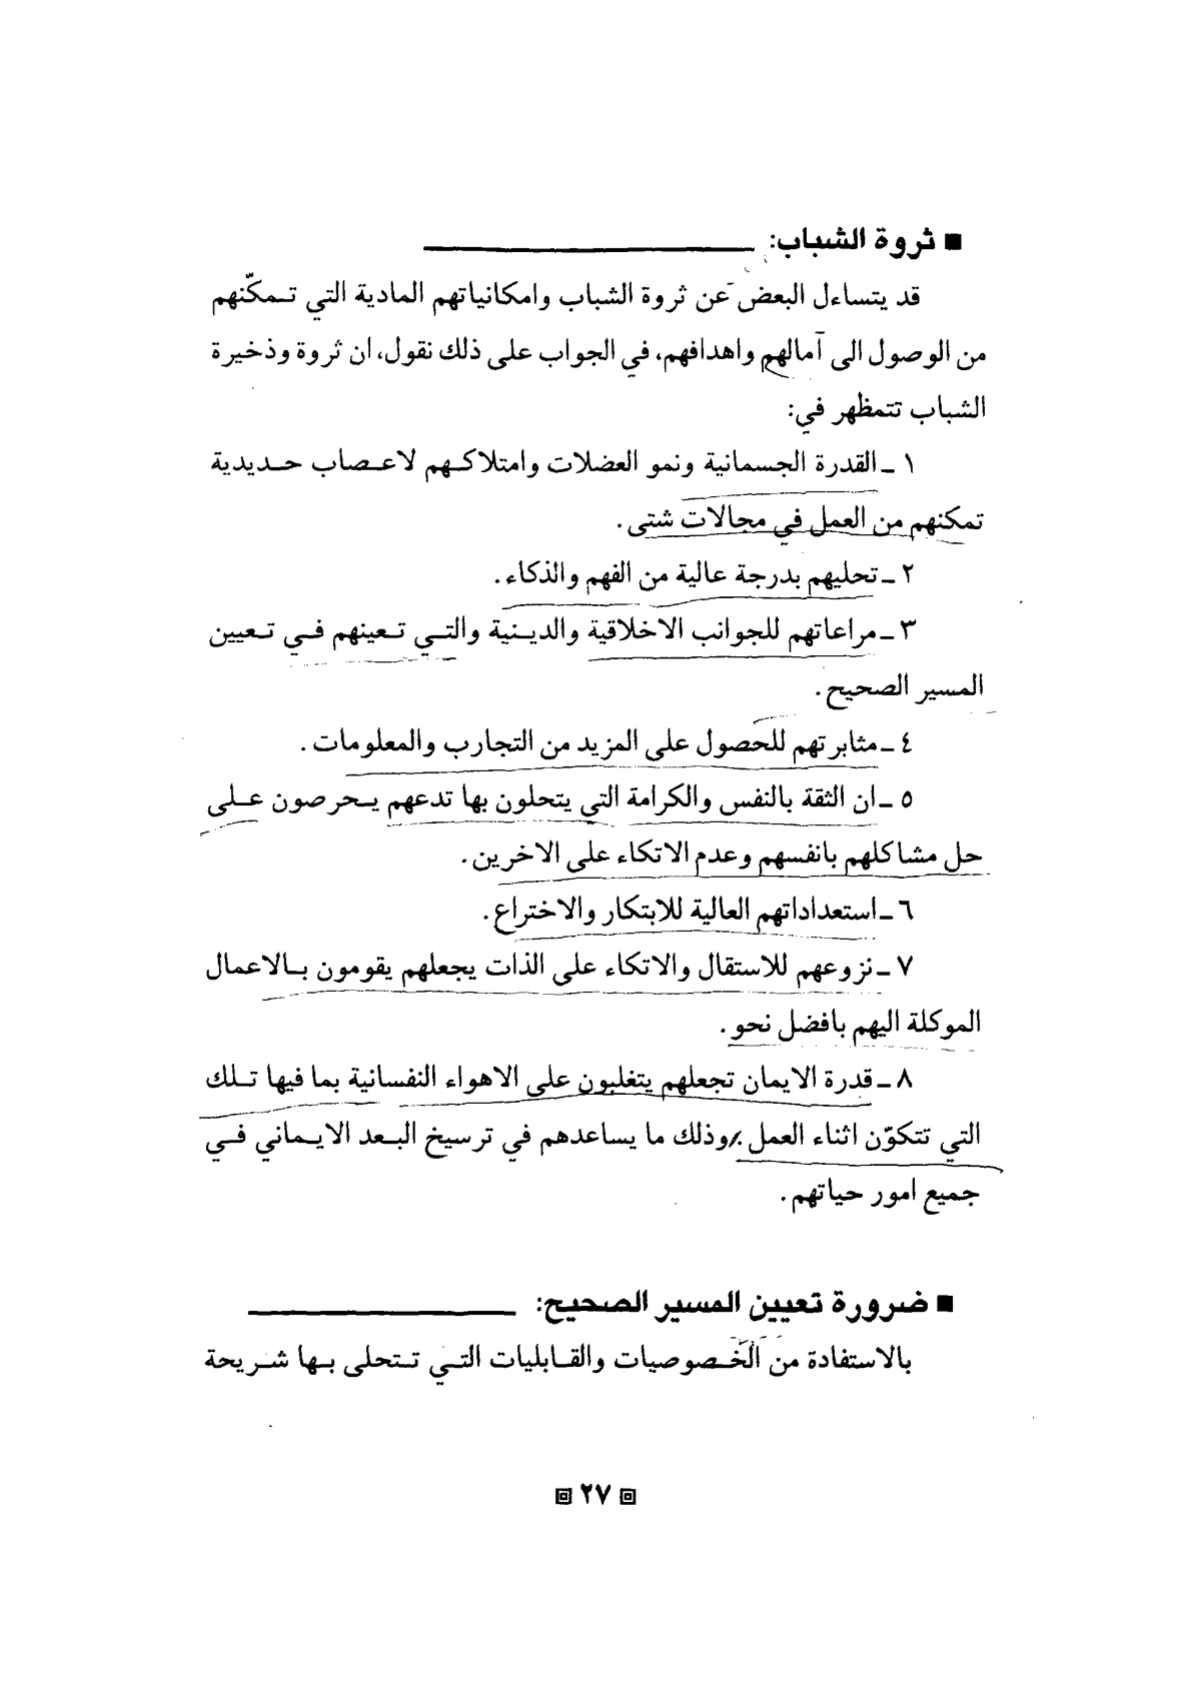 ■ ثروة الشباب:
قد يتساءل البعض عن ثروة الشباب وامكانياتهم المادية التي تـمكّنهم
من الوصول الى آمالهم واهدافهم، في الجواب على ذلك نقول، ان ثروة وذخيرة
الشباب تتمظهر في:
١ ـ القدرة الجسمانية ونمو العضلات وامتلاكـهم لاعـصاب حـديدية
تمكنهم من العمل في مجالات شتى.
٢ ـ تحليهم بدرجة عالية من الفهم والذكاء.
٣ ـ مراعاتهم للجوانب الاخلاقية والديـنية والتـي تـعينهم فـي تـعيين
المسير الصحيح.
٤ ـ مثابرتهم للحصول على المزيد من التجارب والمعلومات.
٥ ـ ان الثقة بالنفس والكرامة التي يتحلون بها تدعهم يـحرصون عـلى
حل مشاكلهم بانفسهم وعدم الاتكاء على الاخرين.
٦ ـ استعداداتهم العالية للابتكار والاختراع.
٧ ـ نزوعهم للاستقال والاتكاء على الذات يجعلهم يقومون بـالاعمال
الموكلة اليهم بافضل نحو.
٨ ـ قدرة الايمان تجعلهم يتغلبون على الاهواء النفسانية بما فيها تـلك
التي تتكوّن اثناء العمل. وذلك ما يساعدهم في ترسيخ البـعد الايـماني فـي
جميع امور حياتهم.
■ ضرورة تعيين المسير الصحيح:
بالاستفادة من الخـصوصيات والقـابليات التـي تـتحلى بـها شـريحة
٢٧